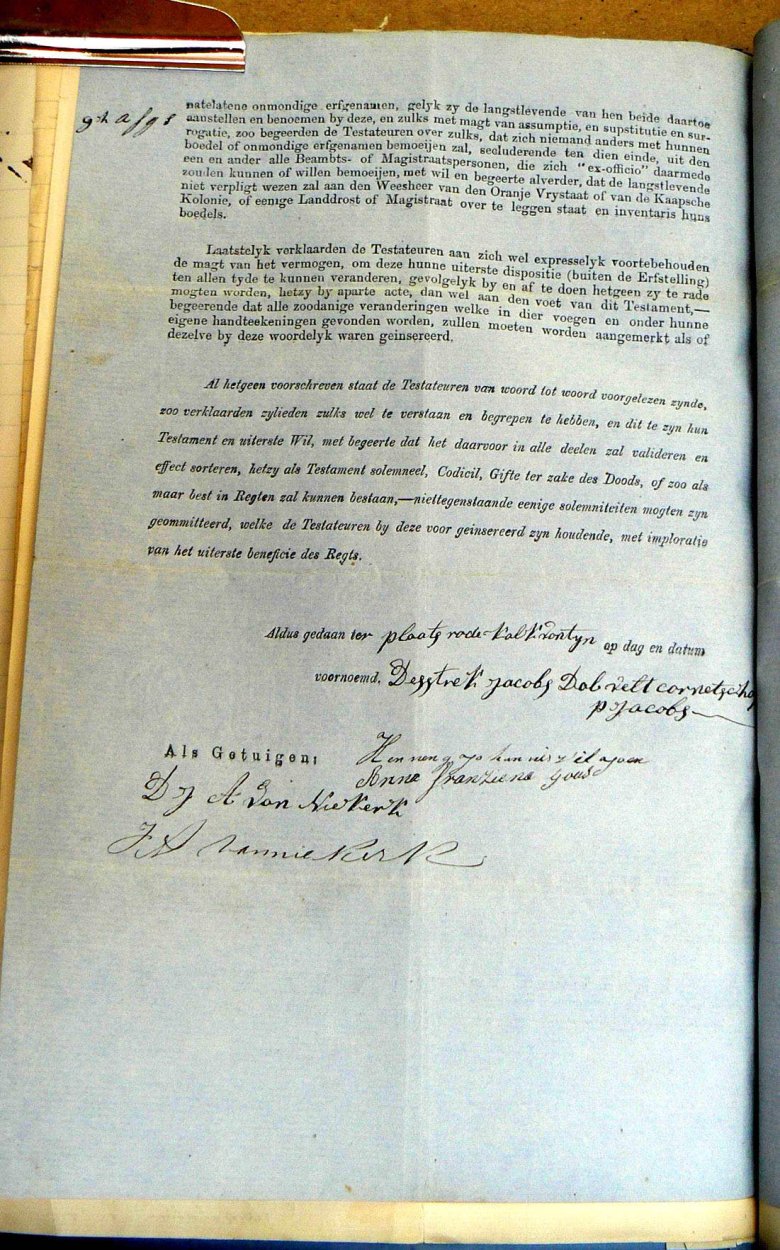 natelatene onmondige erfgenamen, gelyk zy de langstlevende van hen beide daartoe
aanstellen en benoemen by deze, en zulks met magt van assumptie, en supstitutie en sur-
rogatie, zoo begeerden de Testateuren over zulks, dat zich niemand anders met hunnen
boedel of onmondige erfgenamen bemoeijen zal, secluderende ten dien einde, uit den
een en ander alle Beambts- of Magistraatspersonen, die zich "ex-officio" daarmede
zouden kunnen of willen bemoeijen, met wil en begeerte alverder, dat de langstlevende
niet verpligt wezen zal aan den Weesheer van den Oranje Vrystaat of van de Kaapsche
Kolonie, of eenige Landdrost of Magistraat over te leggen staat en inventaris huns
boedels.
Laatstelyk verklaarden de Testateuren aan zich wel expresselyk voortebehouden
de magt van het vermogen, om deze hunne uiterste dispositie (buiten de Erfstelling)
ten allen tyde te kunnen veranderen, gevolgelyk by en af te doen hetgeen zy te rade
mogten worden, hetzy by aparte acte, dan wel aan den voet van dit Testament,—
begeerende dat alle zoodanige veranderingen welke in dier voegen en onder hunne
eigene handteekeningen gevonden worden, zullen moeten worden aangemerkt als of
dezelve by deze woordelyk waren geinsereerd.
Al hetgeen voorschreven staat de Testateuren van woord tot woord voorgelezen zynde,
zoo verklaarden zylieden zulks wel te verstaan en begrepen te hebben, en dit te zyn hun
Testament en uiterste Wil, met begeerte dat het daarvoor in alle deelen zal valideren en
effect sorteren, hetzy als Testament solemneel, Codicil, Gifte ter zake des Doods, of zoo als
maar best in Regten zal kunnen bestaan,—niettegenstaande eenige solemniteiten mogten zyn
geommitteerd, welke de Testateuren by deze voor geinsereerd zyn houdende, met imploratie
van het uiterste beneficie des Regts.
Aldus gedaan ter plaats rode kalk fontyn op dag en datum
voornoemd. Desstrek Jacobs Dal velt cornetschap
P Jacobs
Als Getuigen:
Anna Franziena Gous
D J A Van Niekerk
J A van niekerk